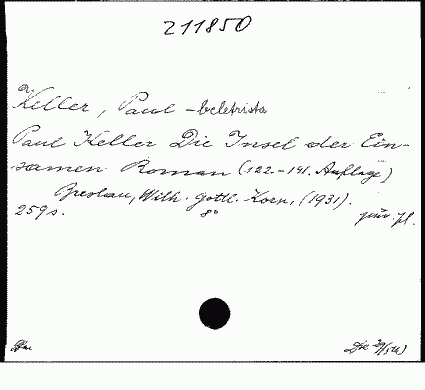 211850
Keller, Paul - beletrista
Paul Keller Die Insel der Ein-
samen Roman (122.-141. Auflage)
Breslau, Wilh. Gottl. Korn, (1931).
259 s. 8° pův. pl.